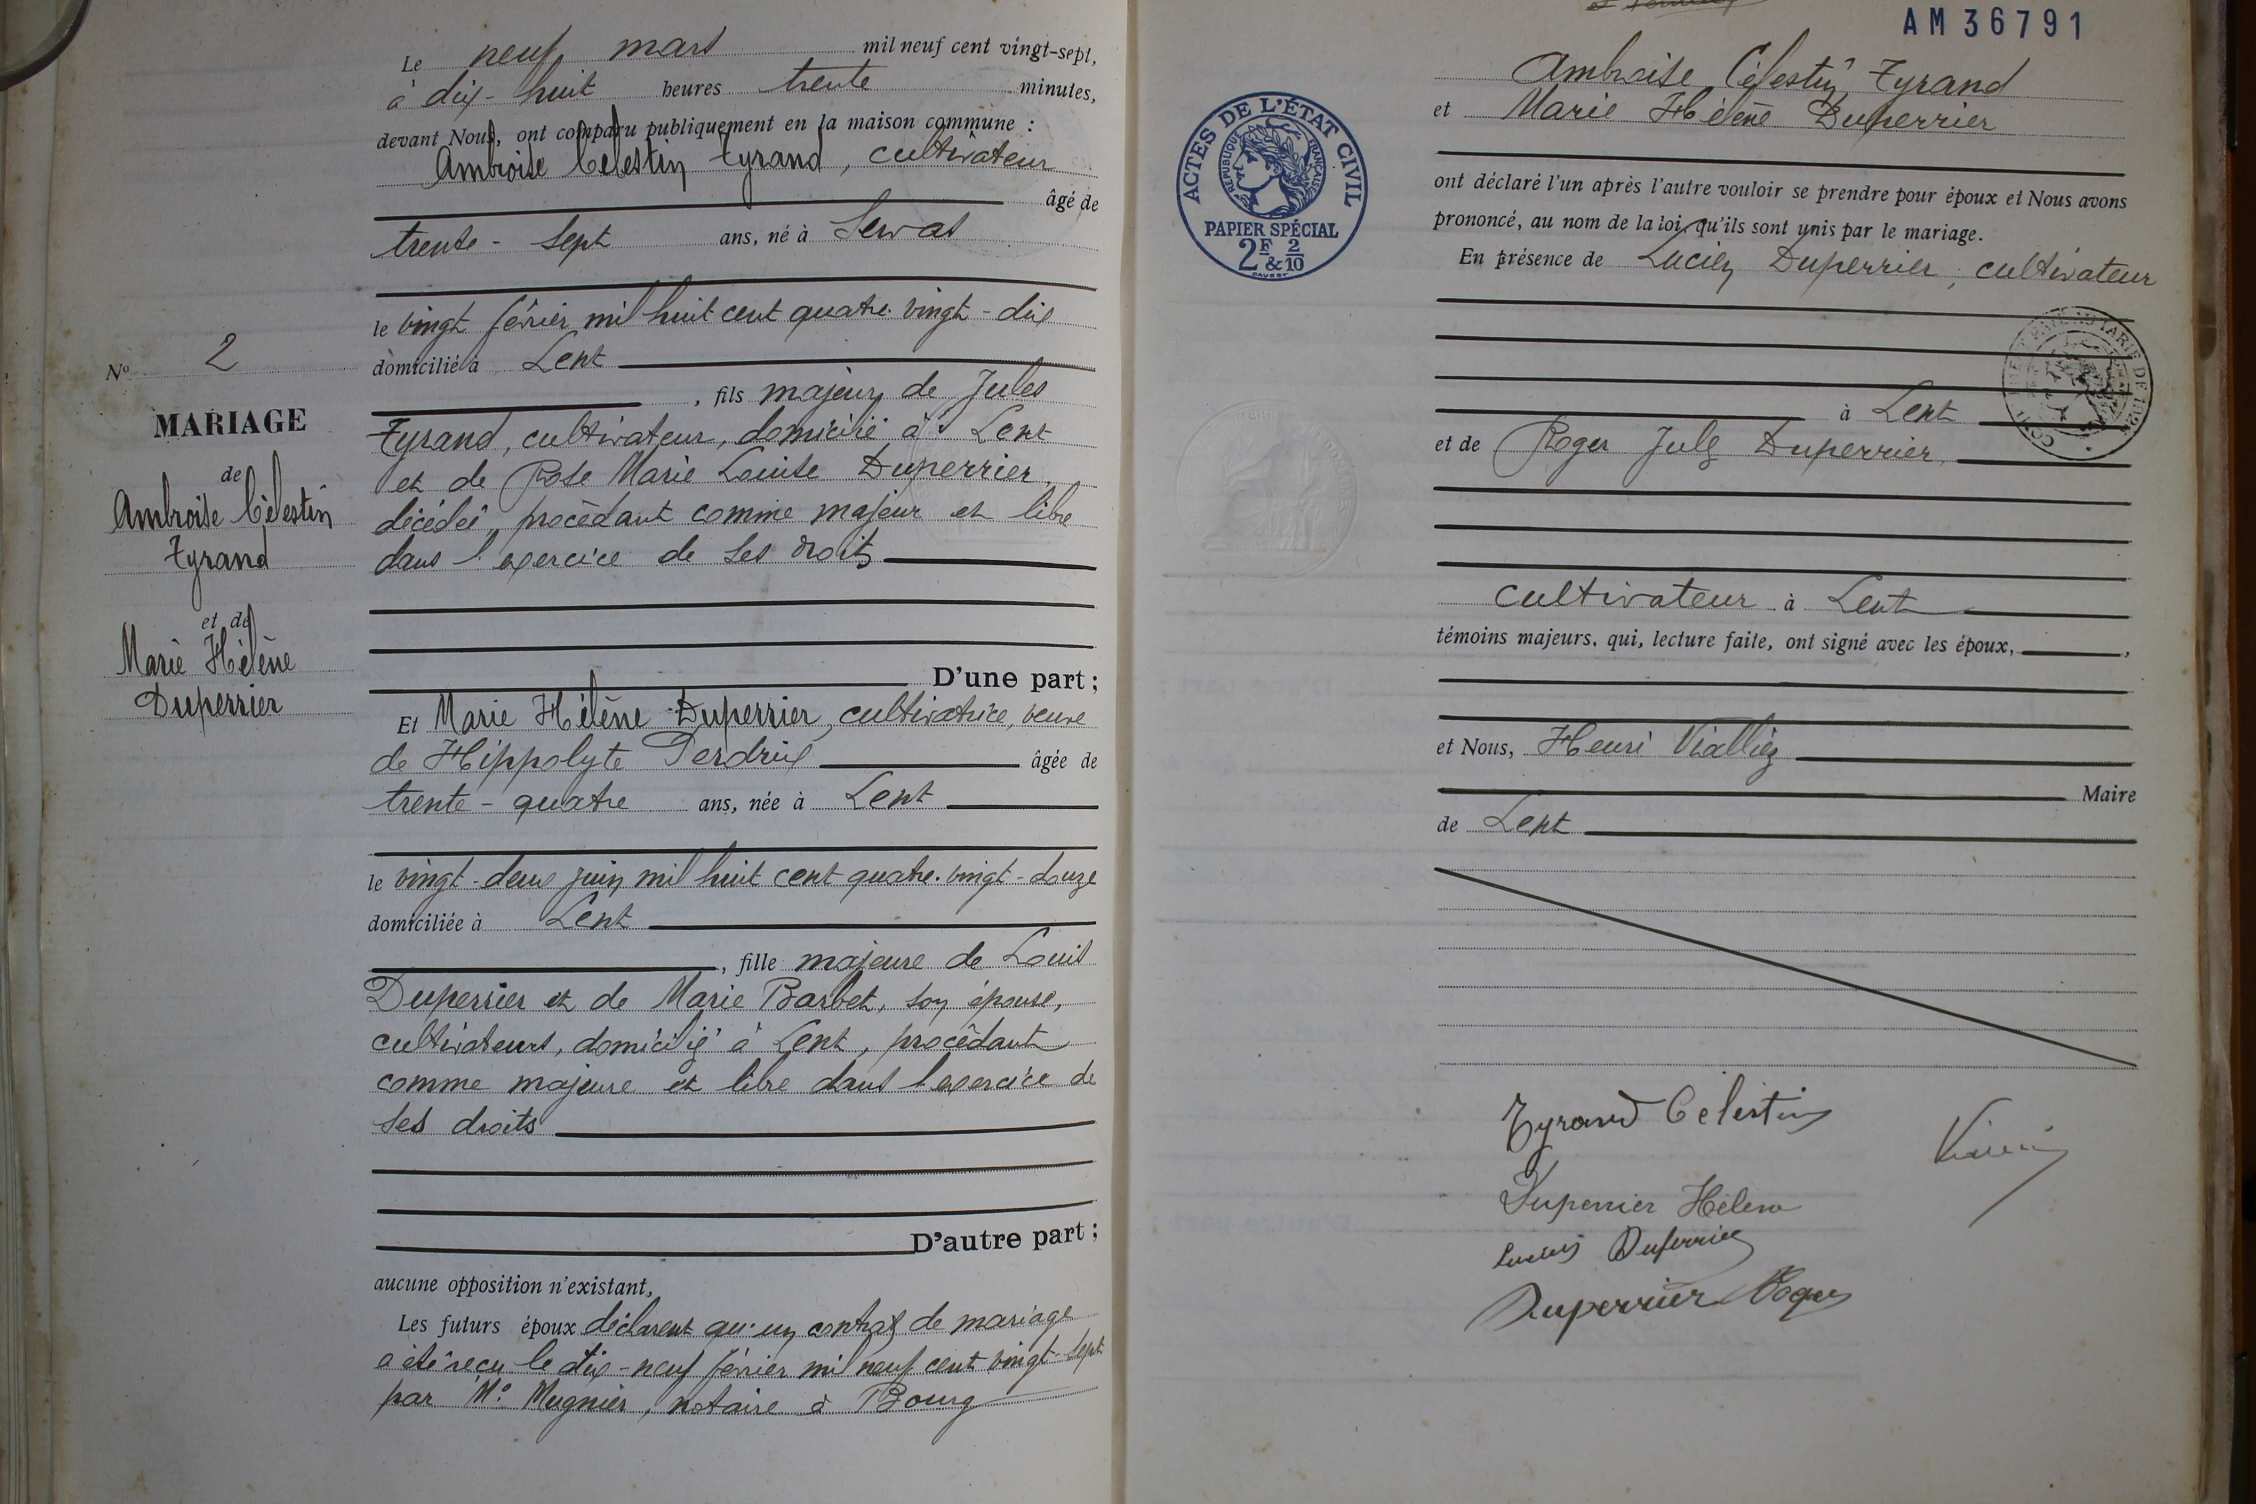 Le neuf mars mil neuf cent vingt-sept,
à dix-huit heures trente minutes,
devant Nous, ont comparu publiquement en la maison commune :
Ambroise Célestin Tyrand, cultivateur
âgé de
trente-sept ans, né à Servas
le vingt février mil huit cent quatre-vingt-dix
domicilié à Lent
, fils majeur de Jules
Tyrand, cultivateur, domicilié à Lent
et de Rose Marie Louise Duperrier,
décédée, procédant comme majeur et libre
dans l'exercice de ses droits
D'une part ;
Et Marie Hélène Duperrier, cultivatrice, veuve
de Hippolyte Perdrix âgée de
trente-quatre ans, née à Lent
le vingt-deux juin mil huit cent quatre-vingt-douze
domiciliée à Lent
, fille majeure de Louis
Duperrier et de Marie Barbet, son épouse,
cultivateurs, domiciliés à Lent, procédant
comme majeure et libre dans l'exercice de
ses droits
D'autre part ;
aucune opposition n'existant,
Les futurs époux déclarent qu'un contrat de mariage
a été reçu le dix-neuf février mil neuf cent vingt-sept
par Me Mugnier, notaire à Bourg
No 2
MARIAGE
de
Ambroise Célestin
Tyrand
et de
Marie Hélène
Duperrier
AM 36791
ACTES DE L'ÉTAT CIVIL
RÉPUBLIQUE FRANÇAISE
PAPIER SPÉCIAL
2F & 2/10
Ambroise Célestin Tyrand
et Marie Hélène Duperrier
ont déclaré l'un après l'autre vouloir se prendre pour époux et Nous avons
prononcé, au nom de la loi, qu'ils sont unis par le mariage.
En présence de Lucien Duperrier, cultivateur
à Lent
et de Roger Jules Duperrier,
cultivateur à Lent
témoins majeurs, qui, lecture faite, ont signé avec les époux,
et Nous, Henri Viallier
Maire
de Lent
Tyrand Celestin
Duperrier Hélène
Lucien Duperrier
Duperrier Roger